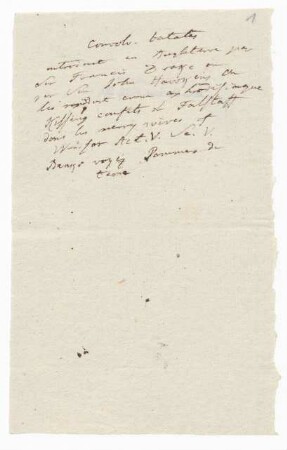 1
Convolv. batatas
introduit en Angleterre par
Sir Francis Drake ou
par Sir John Hawkins On
les vendait comme aphrodisiaque
Kissing comfits de Falstaff
dans les merry wives of
Windsor Act. V. Sc. V.
Banks voyez Pommes de
terre